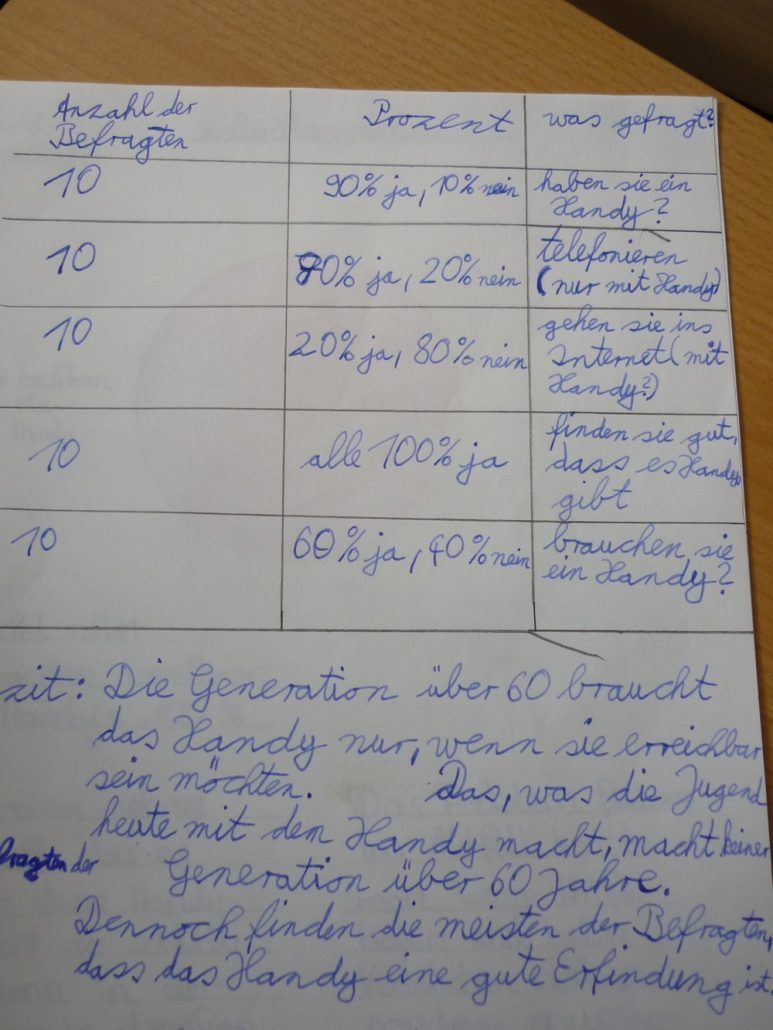 Anzahl der
Befragten
Prozent
was gefragt?
10
90% ja, 10% nein
haben sie ein
Handy?
10
80% ja, 20% nein
telefonieren
(nur mit Handy)
10
20% ja, 80% nein
gehen sie ins
Internet (mit
Handy?)
10
alle 100% ja
finden sie gut,
dass es Handys
gibt
10
60% ja, 40% nein
brauchen sie
ein Handy?
zit: Die Generation über 60 braucht
das Handy nur, wenn sie erreichbar
sein möchten. Das, was die Jugend
heute mit dem Handy macht, macht keiner
fragten der Generation über 60 Jahre.
Dennoch finden die meisten der Befragten,
dass das Handy eine gute Erfindung ist.